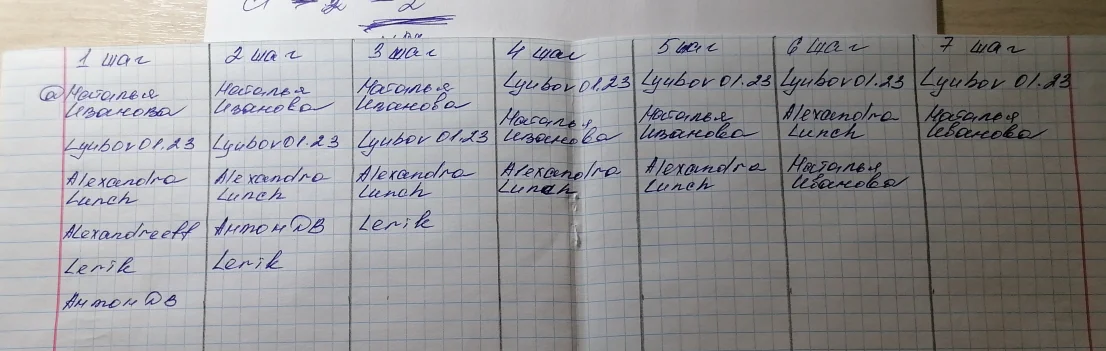 1 шаг
2 шаг
3 шаг
4 шаг
5 шаг
6 шаг
7 шаг
Наталья
Иванова
Lyubov 01.23
Alexandra
Lunch
Alexandreeff
Lerik
Антон ДВ
Наталья
Иванова
Lyubov 01.23
Alexandra
Lunch
Антон ДВ
Lerik
Наталья
Иванова
Lyubov 01.23
Alexandra
Lunch
Lerik
Lyubov 01.23
Наталья
Иванова
Alexandra
Lunch
Lyubov 01.23
Наталья
Иванова
Alexandra
Lunch
Lyubov 01.23
Alexandra
Lunch
Наталья
Иванова
Lyubov 01.23
Наталья
Иванова